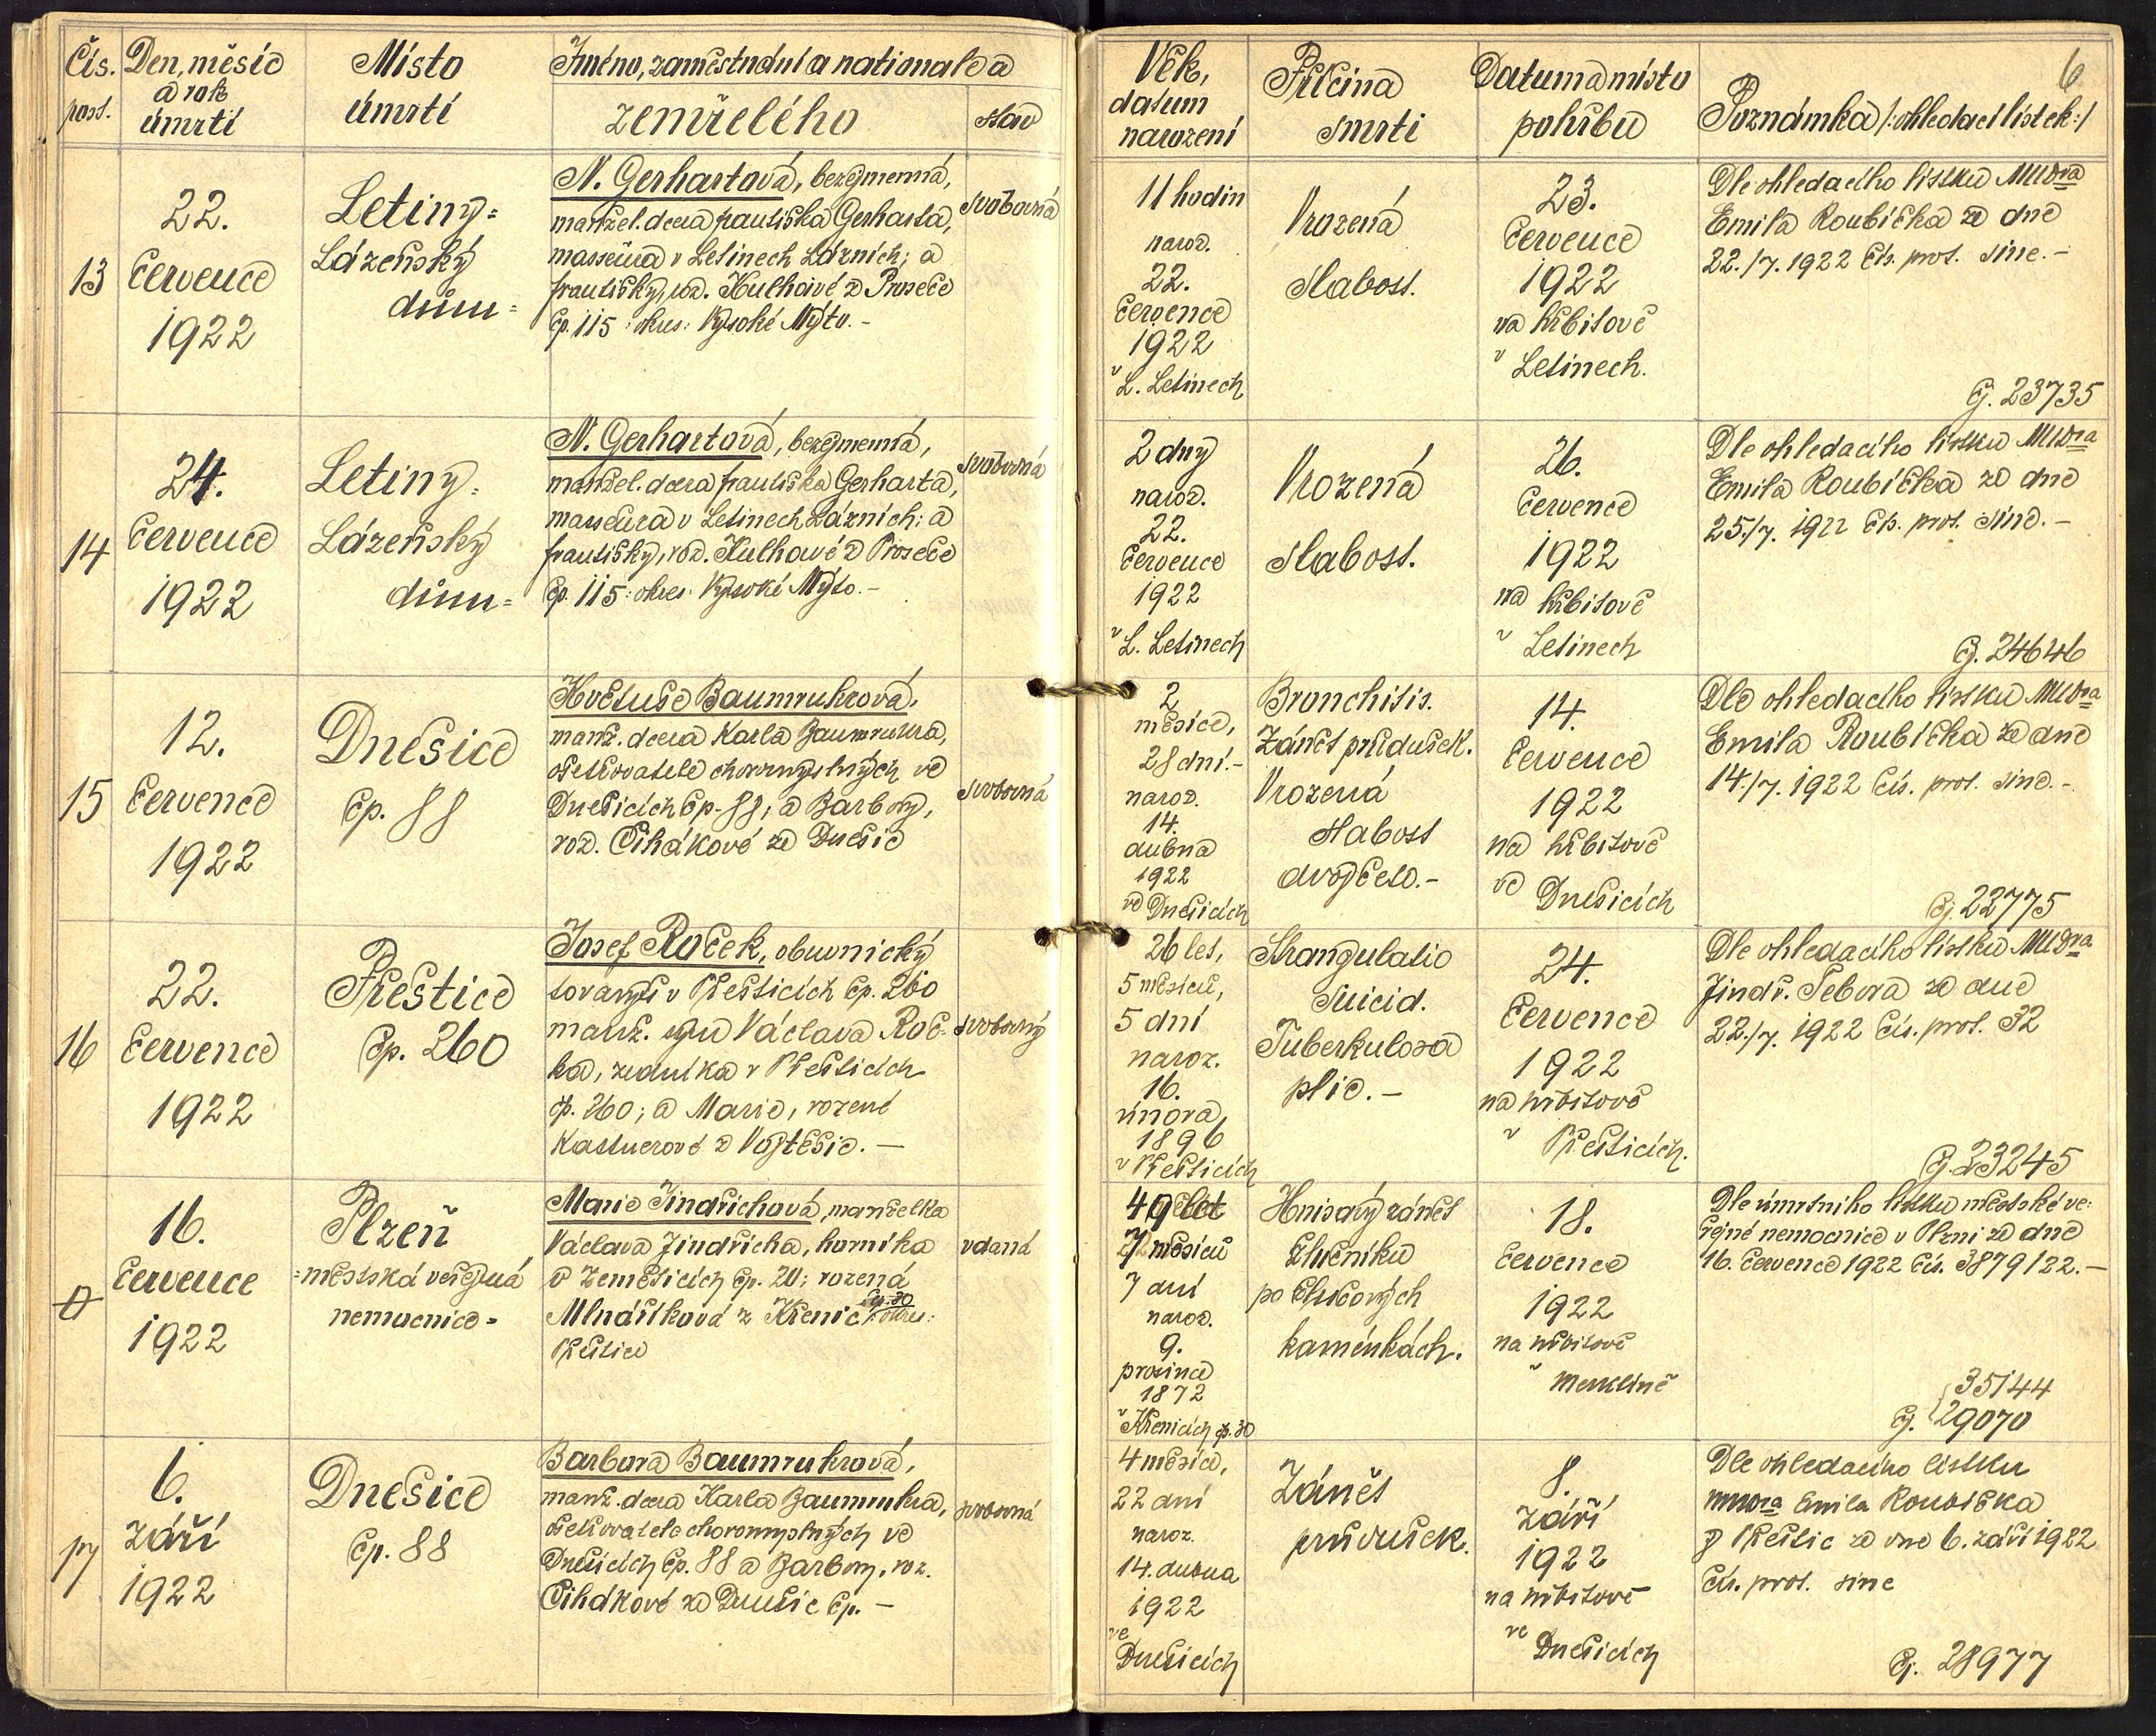 Čís. post.
Den, měsíc a rok úmrtí
Místo úmrtí
Jméno, zaměstnání a nationale a
zemřelého
stav
13
22.
července
1922
Letiny=
Lázeňský
dům=
N. Gerhartová, bezejmenná,
manžel. dcera františka Gerharta,
masséura v Letinech Lázních; a
františky, roz. Kulhavé z Proseče
čp. 115: okres: Vysoké Mýto.-
svobodná
14
24.
července
1922
Letiny=
Lázeňský
dům=
N. Gerhartová, bezejmenná,
manžel. dcera františka Gerharta,
masséura v Letinech Lázních; a
františky, roz. Kulhavé z Proseče
čp. 115: okres: Vysoké Mýto.-
svobodná
15
12.
července
1922
Dnešice
čp. 88
Květuše Baumrukrová,
manž. dcera Karla Baumrukra,
ošetřovatele choromyslných ve
Dnešicích čp. 88; a Barbory,
roz. Čihákové ze Dnešic
svobodná
16
22.
července
1922
Přeštice
čp. 260
Josef Roček, obuvnický
tovaryš v Přešticích čp. 260
manž. syn Václava Roč-
ka, zedníka v Přešticích
čp. 260; a Marie, rozené
Kastnerové z Vojtěšic.-
svobodný
16.
července
1922
Plzeň
=městská veřejná
nemocnice=
Marie Jindřichová, manželka
Václava Jindřicha, horníka
v Zeměticích čp. 20; rozená
Mlnaříková z Křenic čp. 30 /: okres:
Přeštice
vdaná
17
6.
září
1922
Dnešice
čp. 88
Barbora Baumrukrová,
manž. dcera Karla Baumrukra,
ošetřovatele choromyslných ve
Dnešicích čp. 88 a Barbory, roz.
Čihákové ze Dnešic čp. -
svobodná
6
Věk,
datum
narození
Příčina
smrti
Datum a místo
pohřbu
Poznámka /:ohledací lístek:/
11 hodin
naroz.
22.
července
1922
v L. Letinech
Vrozená
slabost.
23.
července
1922
na hřbitově
v Letinech.
Dle ohledacího lístku MUDra
Emila Roubíčka ze dne
22./7. 1922 čís. prot. sine.-
Čj. 23735
2 dny
naroz.
22.
července
1922
v L. Letinech
Vrozená
slabost.
26.
července
1922
na hřbitově
v Letinech
Dle ohledacího lístku MUDra
Emila Roubíčka ze dne
25./7. 1922 čís. prot. sine.-
Čj. 24646
2
měsíce,
28 dní.-
naroz.
14.
dubna
1922
ve Dnešicích
Bronchitis.
Zánět průdušek.
Vrozená
slabost
dvojčete.-
14.
července
1922
na hřbitově
ve Dnešicích
Dle ohledacího lístku MUDra
Emila Roubíčka ze dne
14./7. 1922 čís. prot. sine.-
Čj. 22775
26 let,
5 měsíců,
5 dní
naroz.
16.
února
1896
v Přešticích
Strangulatio
Suicid.
Tuberkulosa
plic.-
24.
července
1922
na hřbitově
v Přešticích.
Dle ohledacího lístku MUDra
Jindř. Šebora ze dne
22./7. 1922 čís. prot. 32
Čj. 23245
49 let
7 měsíců
7 dní
naroz.
9.
prosince
1872
v Křenicích čp. 30
Hnisavý zánět
žlučníku
po žlučových
kaménkách.
18.
července
1922
na hřbitově
v Merklíně
Dle úmrtního lístku městské ve-
řejné nemocnice v Plzni ze dne
16. července 1922 čís. 3879/22.-
35144
Čj. 29070
4 měsíce,
22 dní
naroz.
14. dubna
1922
ve
Dnešicích
Zánět
průdušek.
8.
září
1922
na hřbitově
ve Dnešicích
Dle ohledacího lístku
MUDra Emila Roubíčka
z Přeštic ze dne 6. září 1922
čís. prot. sine
Čj. 28977